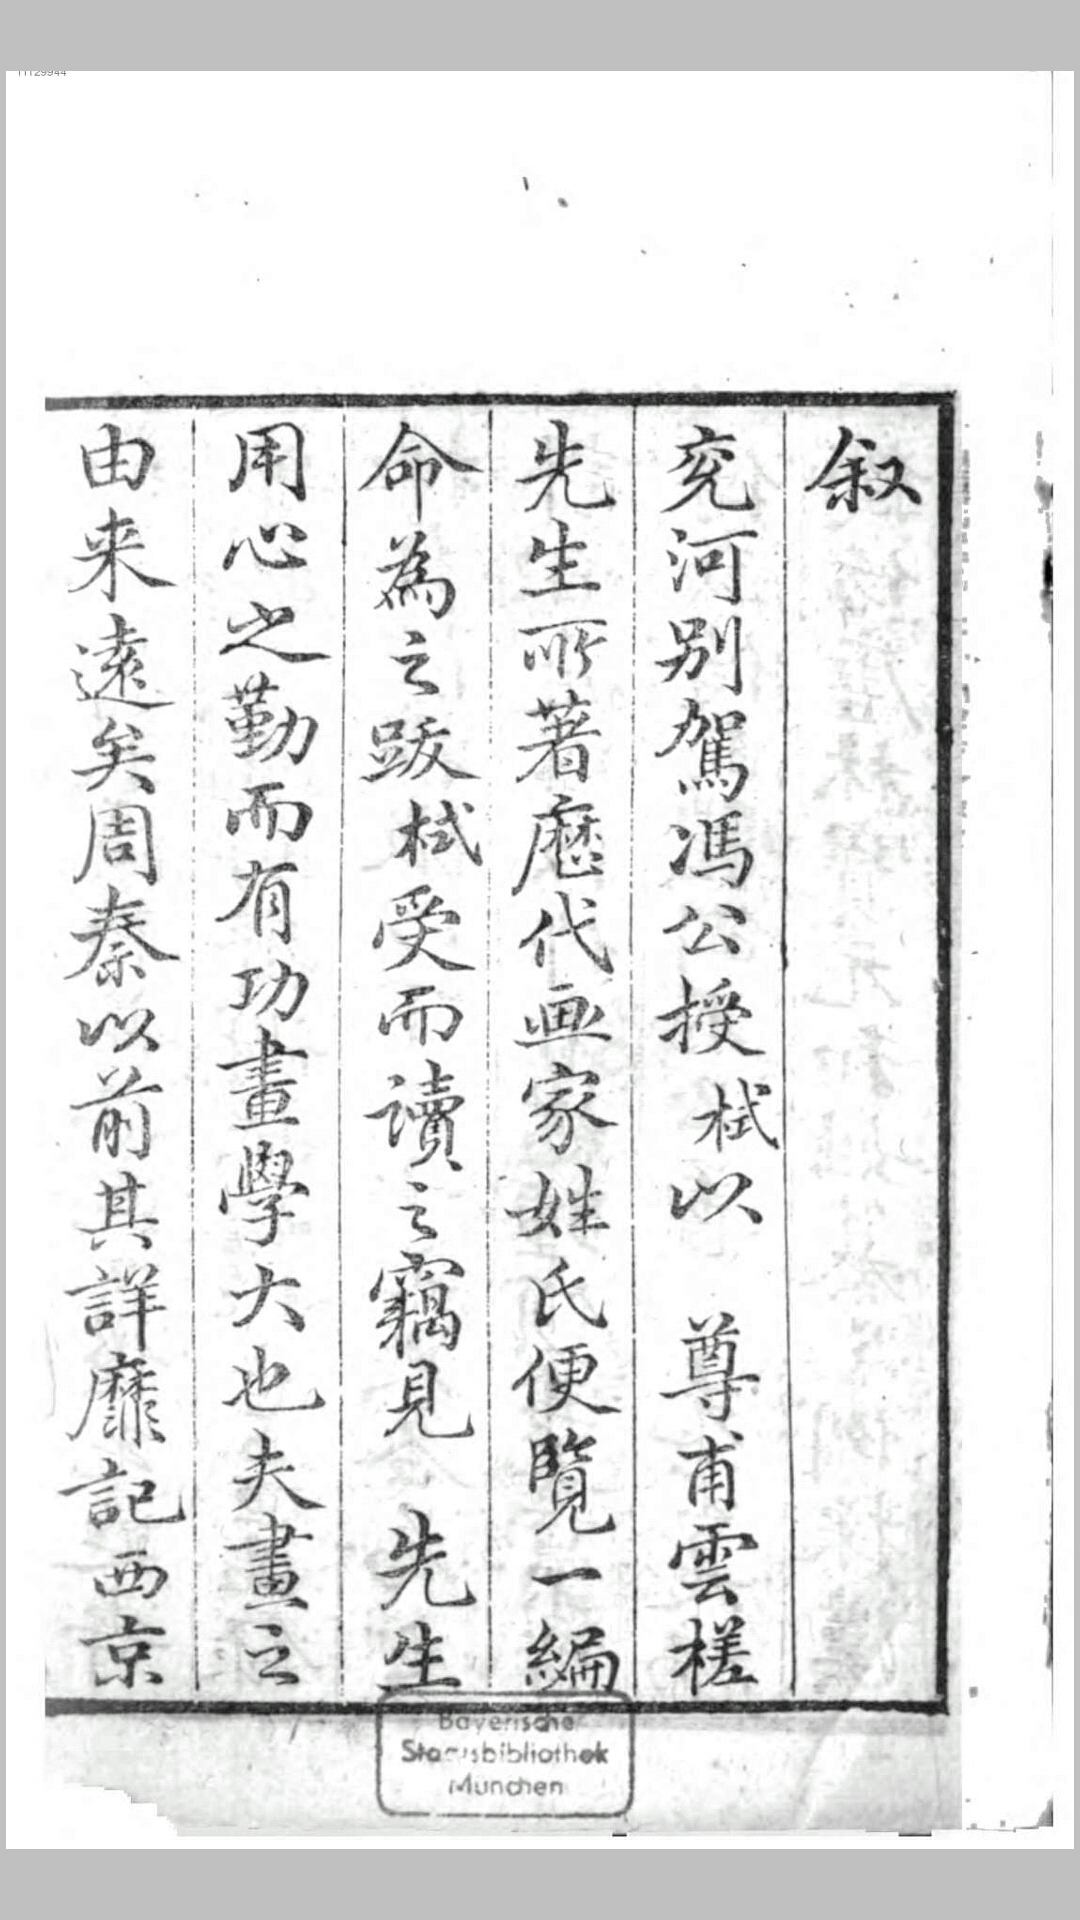 叙
兖河别駕馮公授栻以　尊甫雲槎
先生所著歷代画家姓氏便覽一編
命為之跋栻受而讀之竊見　先生
用心之勤而有功畫學大也夫畫之
由来遠矣周秦以前其詳靡記西京
Bayerische
Staatsbibliothek
München